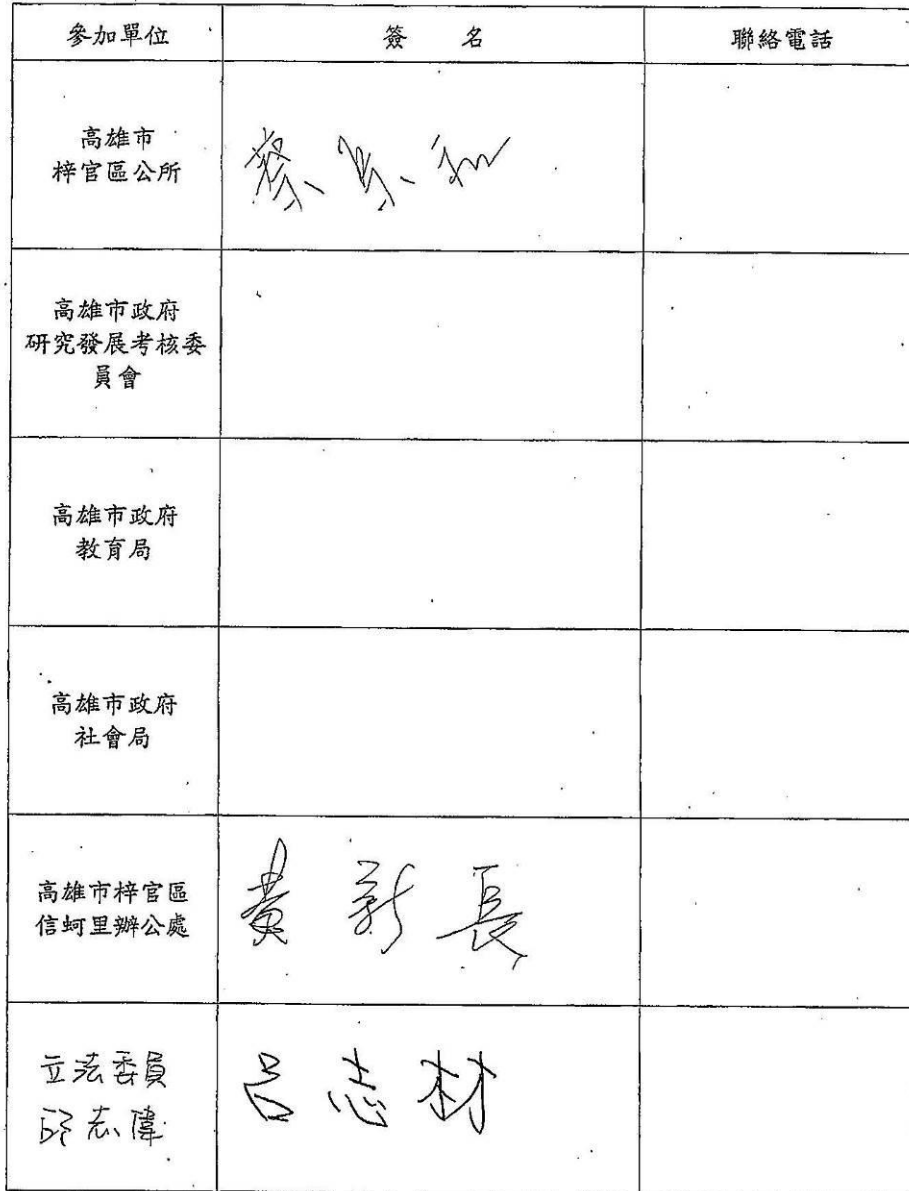 參加單位 簽 名 聯絡電話
高雄市
梓官區公所
高雄市政府
研究發展考核委
員會
高雄市政府
教育局
高雄市政府
社會局
高雄市梓官區
信蚵里辦公處
黃新長
立法委員
邱志偉
呂志材